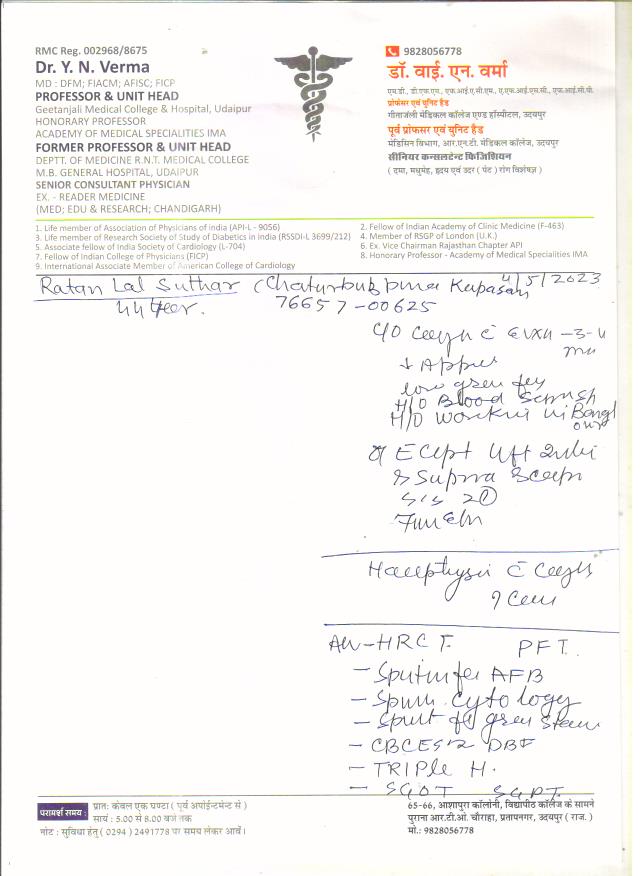 RMC Reg. 002968/8675
Dr. Y. N. Verma
MD : DFM; FIACM; AFISC; FICP
PROFESSOR & UNIT HEAD
Geetanjali Medical College & Hospital, Udaipur
HONORARY PROFESSOR
ACADEMY OF MEDICAL SPECIALITIES IMA
FORMER PROFESSOR & UNIT HEAD
DEPTT. OF MEDICINE R.N.T. MEDICAL COLLEGE
M.B. GENERAL HOSPITAL, UDAIPUR
SENIOR CONSULTANT PHYSICIAN
EX. - READER MEDICINE
(MED; EDU & RESEARCH; CHANDIGARH)
9828056778
डॉ. वाई. एन. वर्मा
एम.डी., डी.एफ.एम., एफ.आई.ए.सी.एम., ए.एफ.आई.एस.सी., एफ.आई.सी.पी.
प्रोफेसर एवं यूनिट हैड
गीतांजली मेडिकल कॉलेज एण्ड हॉस्पीटल, उदयपुर
पूर्व प्रोफसर एवं यूनिट हैड
मेडिसिन विभाग, आर.एन.टी. मेडिकल कॉलेज, उदयपुर
सीनियर कन्सलटेन्ट फिजिशियन
( दमा, मधुमेह, हृदय एवं उदर ( पेट ) रोग विशेषज्ञ )
1. Life member of Association of Physicians of india (API-L - 9056)
3. Life member of Research Society of Study of Diabetics in India (RSSDI-L 3699/212)
5. Associate fellow of India Society of Cardiology (L-704)
7. Fellow of Indian College of Physicians (FICP)
9. International Associate Member of American College of Cardiology
2. Fellow of Indian Academy of Clinic Medicine (F-463)
4. Member of RSGP of London (U.K.)
6. Ex. Vice Chairman Rajasthan Chapter API
8. Honorary Professor - Academy of Medical Specialities IMA
Ratan Lal Suthar Kapasan 4/5/2023
44 year. 76657-00625
C/O
low
H/O Blood
H/O Working in
Supra
AW-HRCT. PFT.
- Sputum for AFB
- cytology
- stain
- CBC ESR
- TRIPLE H.
- SGOT SGPT.
परामर्श समय :
प्रातः केवल एक घण्टा ( पूर्व अपॉईन्टमेन्ट से )
सायं : 5.00 से 8.00 बजे तक
नोट : सुविधा हेतु ( 0294 ) 2491778 पर समय लेकर आवें।
65-66, आशापुरा कॉलोनी, विद्यापीठ कॉलेज के सामने
पुराना आर.टी.ओ. चौराहा, प्रतापनगर, उदयपुर ( राज. )
मो.: 9828056778